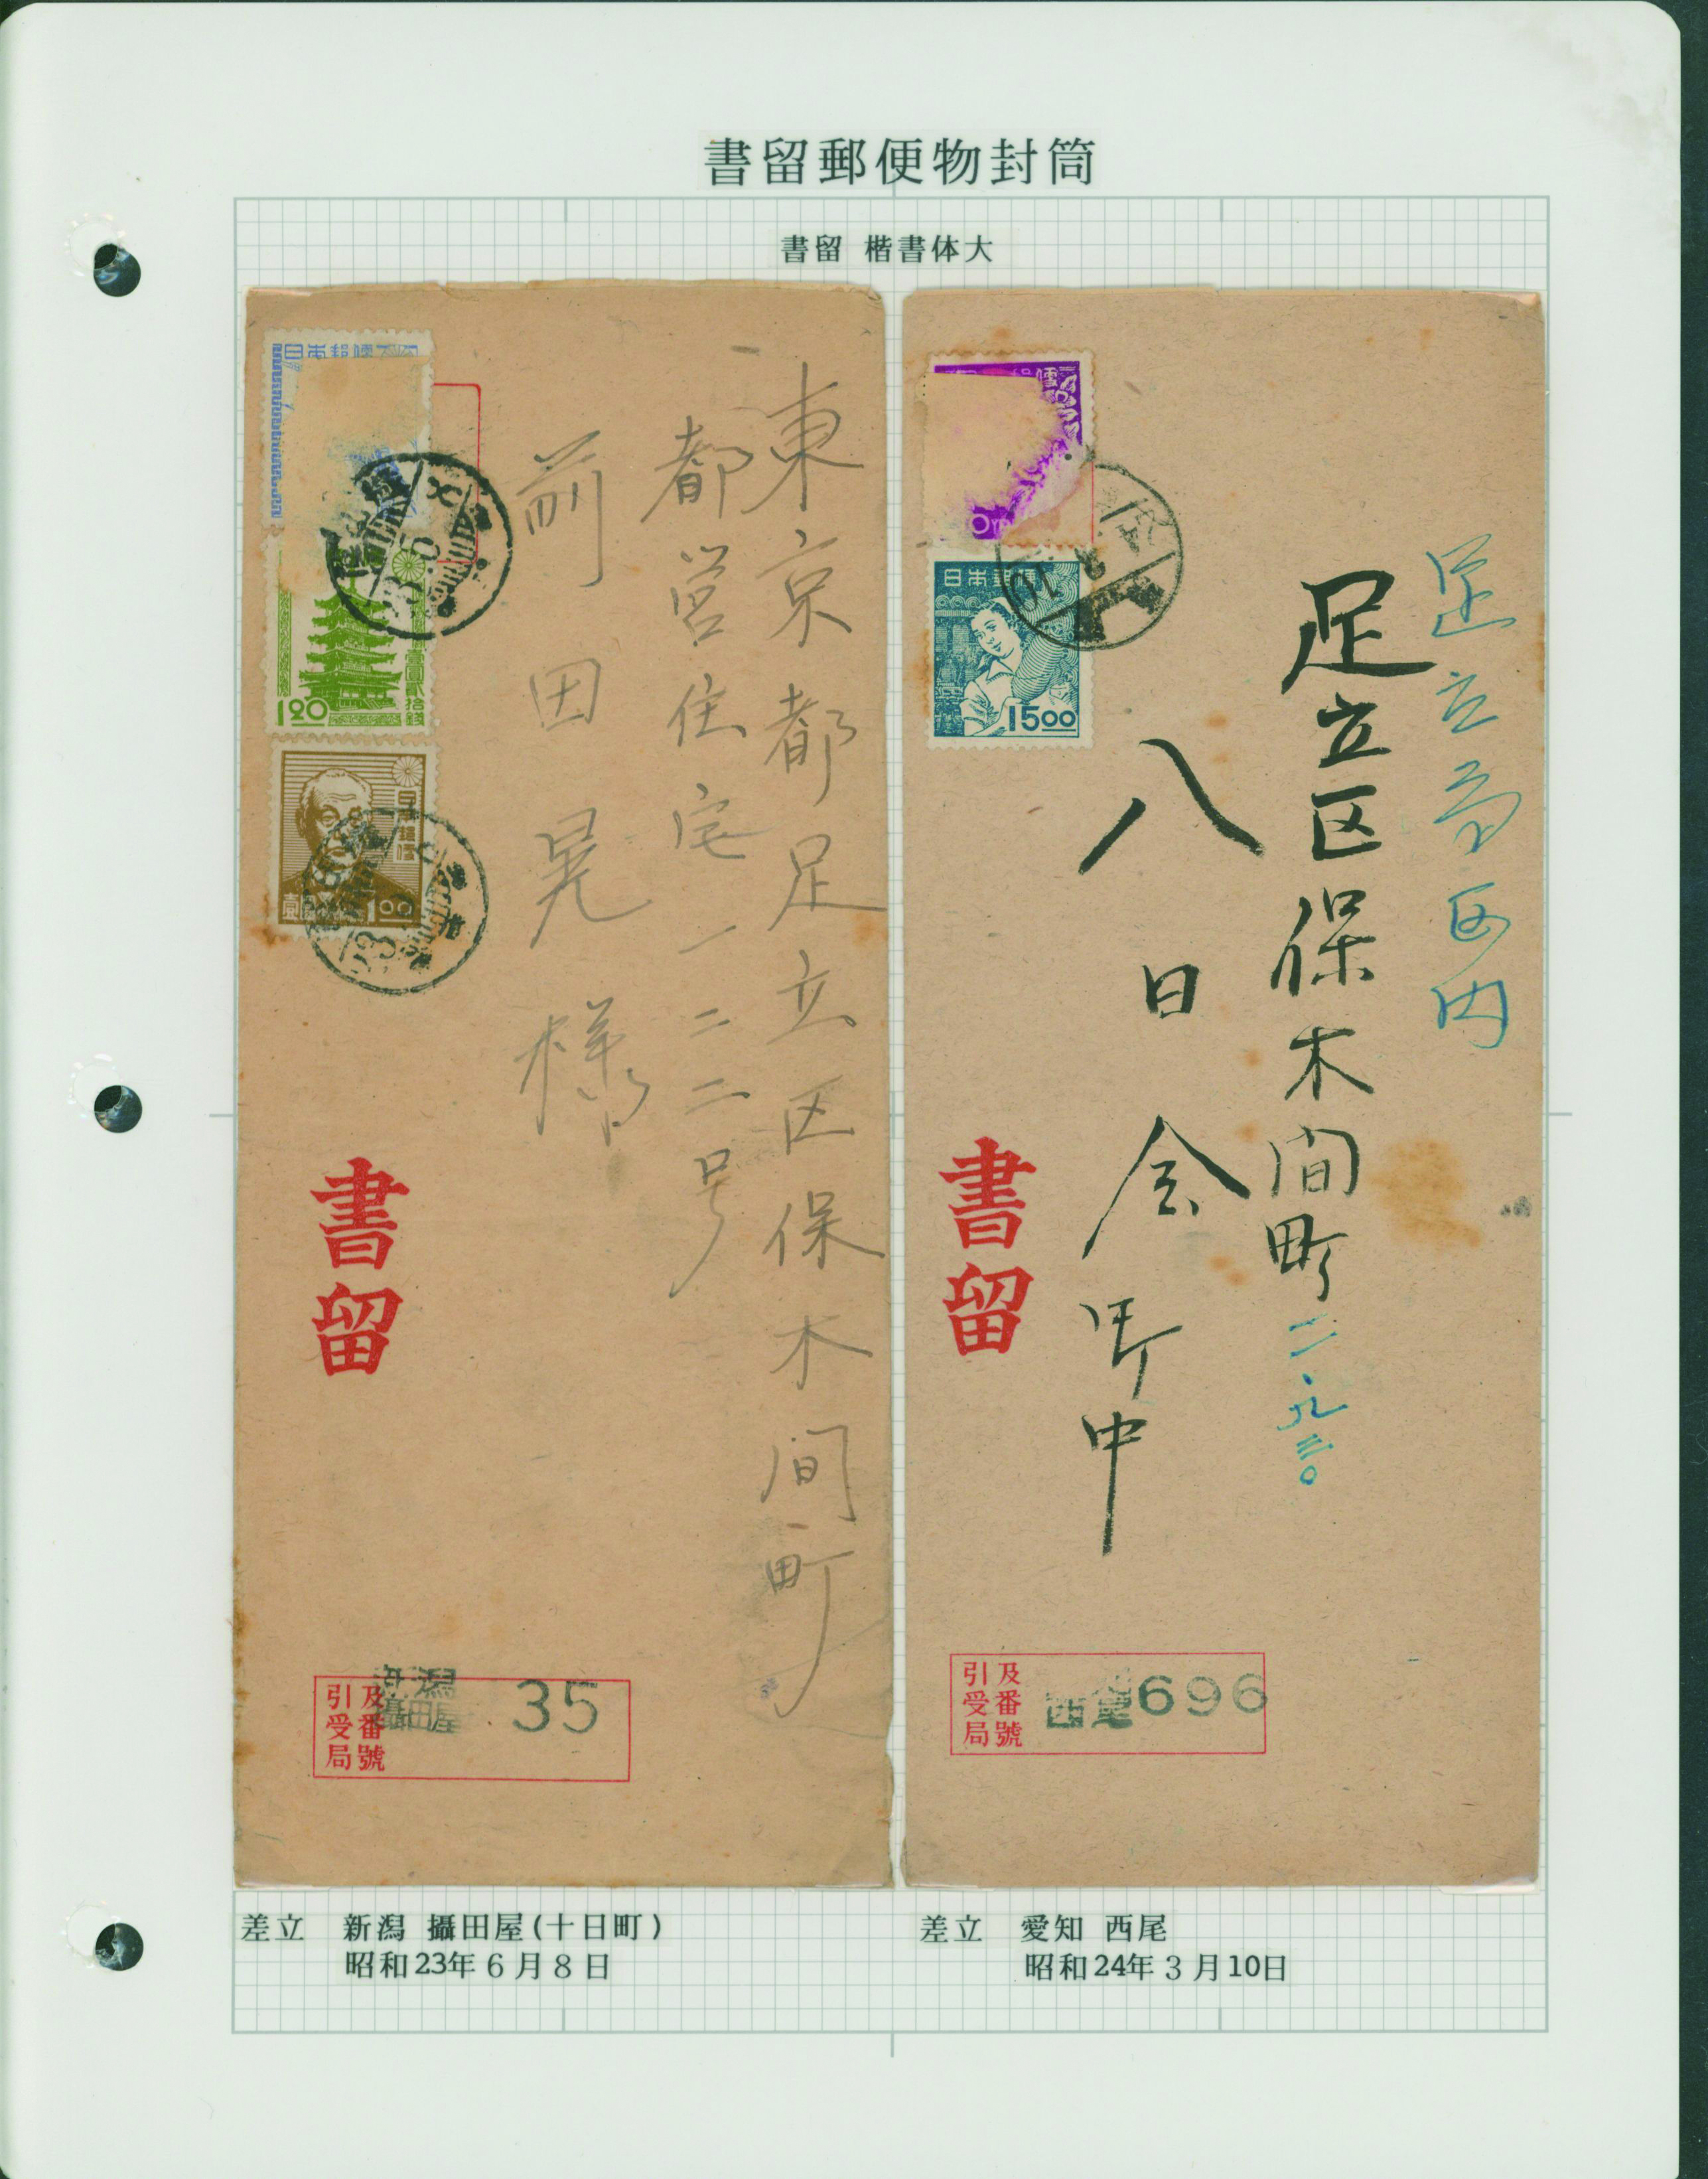 書留郵便物封筒
書留 楷書体大
東京都足立区保木間町
都営住宅一二二号
前田晃様
日本郵便
1.20
壹圓貳拾錢
日本郵便
1.00
書留
引受局
及番號
新潟
攝田屋
35
足立局区内
足立区保木間町二、九三〇
八日会御中
日本郵便
15.00
書留
引受局
及番號
西尾
696
差立 新潟 攝田屋(十日町)
昭和23年6月8日
差立 愛知 西尾
昭和24年3月10日